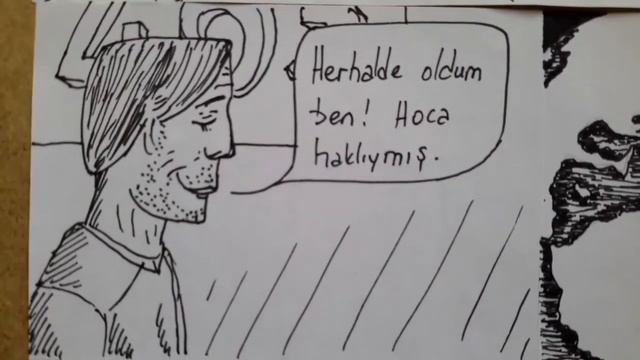 Herhalde oldum
ben! Hoca
haklıymış.